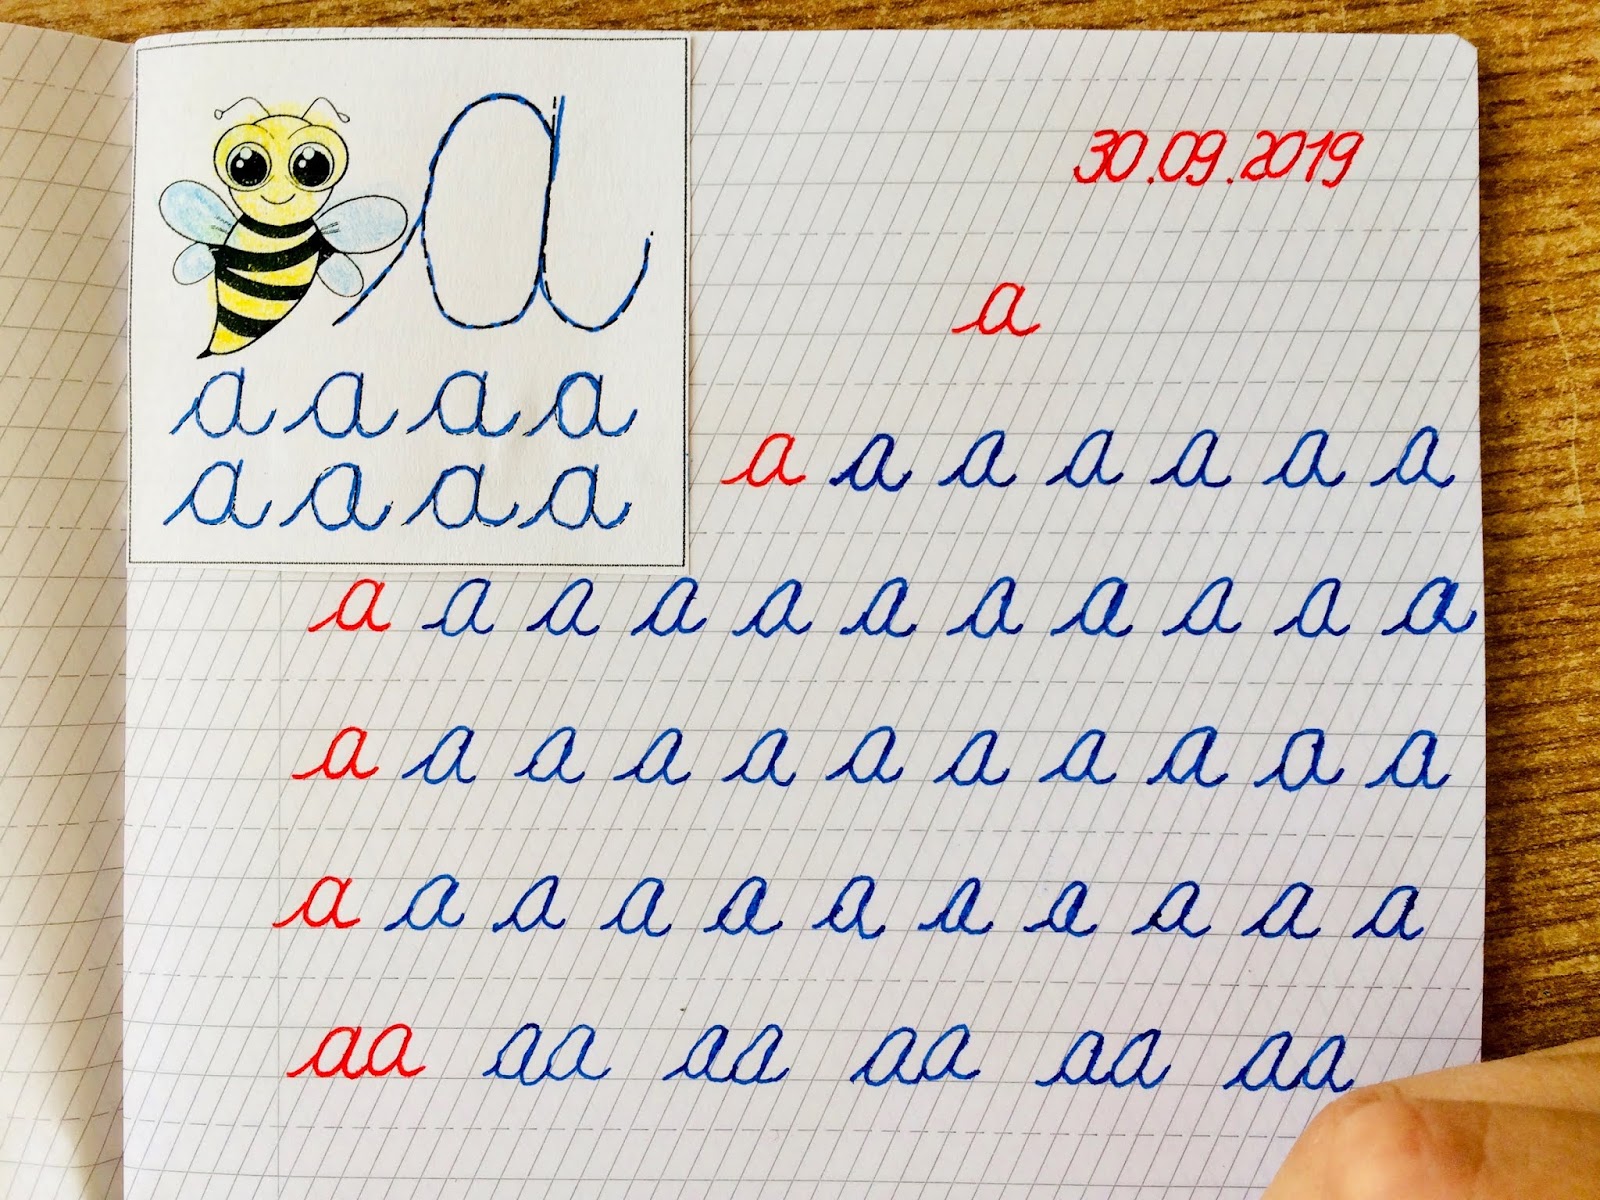 a
a a a a
a a a a
30.09.2019
a
a a a a a a a
a a a a a a a a a a a
a a a a a a a a a a a
a a a a a a a a a a a
aa aa aa aa aa aa